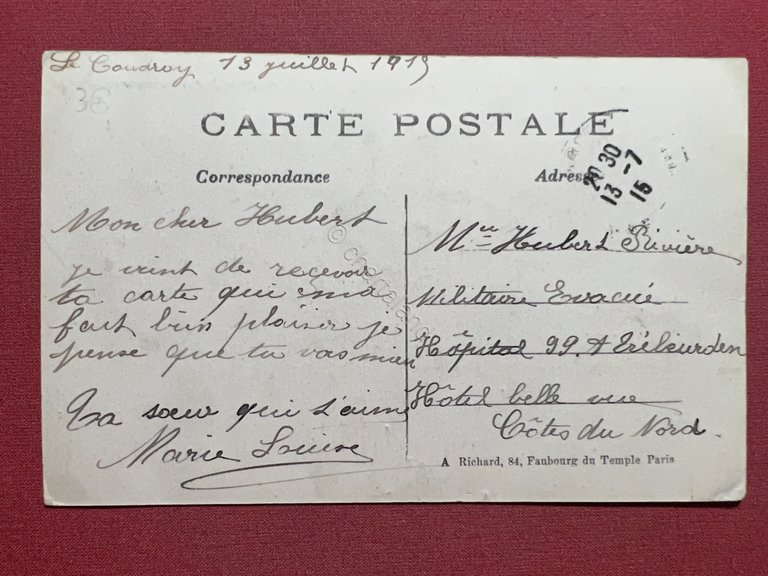 Le Coudray 13 juillet 1915
CARTE POSTALE
Correspondance
Adresse
20 30
13 -7
15
Mon cher Hubert
je vient de recevoir
ta carte qui ma
fait bien plaisir je
pense que tu vas mieu
Ta sœur qui t'aime
Marie Louise
Mr Hubert Rivière
Militaire Evacué
Hôpital 99. A Trébeurden
Hôtel belle vue
Côtes du Nord.
A Richard, 84, Faubourg du Temple Paris